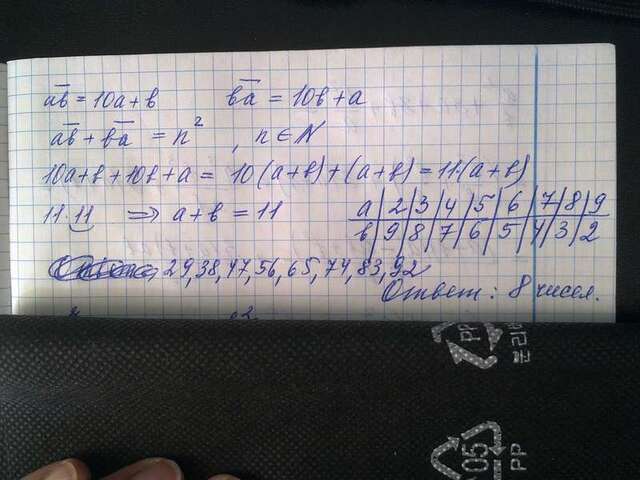 ab̅ = 10a + b   ba̅ = 10b + a
ab̅ + ba̅ = n² , n ∈ N
10a + b + 10b + a = 10(a+b) + (a+b) = 11·(a+b)
11·11 ⇒ a + b = 11
a | 2 | 3 | 4 | 5 | 6 | 7 | 8 | 9
b | 9 | 8 | 7 | 6 | 5 | 4 | 3 | 2
29, 38, 47, 56, 65, 74, 83, 92
Ответ: 8 чисел.
PP
05
PP